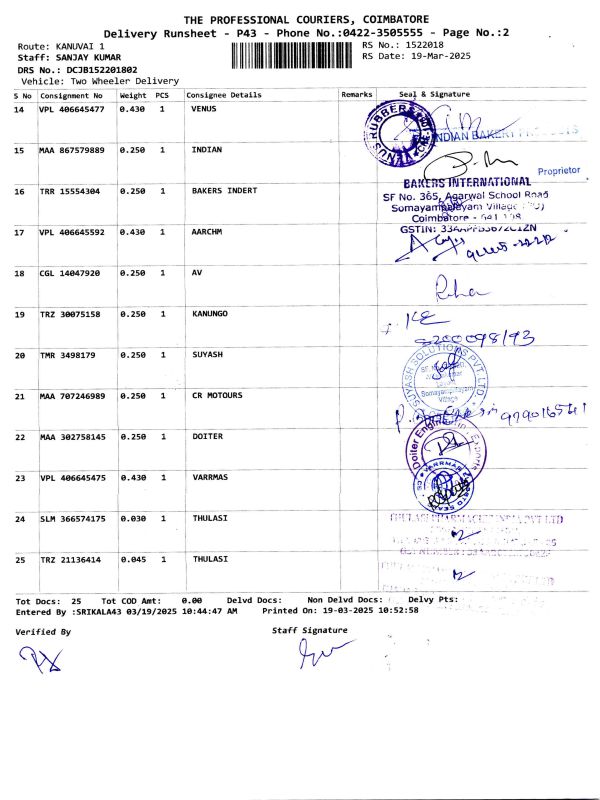 THE PROFESSIONAL COURIERS, COIMBATORE
Delivery Runsheet - P43 - Phone No.:0422-3505555 - Page No.:2
Route: KANUVAI 1 RS No.: 1522018
Staff: SANJAY KUMAR RS Date: 19-Mar-2025
DRS No.: DCJB152201802
Vehicle: Two Wheeler Delivery
S No Consignment No Weight PCS Consignee Details Remarks Seal & Signature
14 VPL 406645477 0.430 1 VENUS
VENUS RUBBERS
INDIAN BAKERY PRODUCTS
15 MAA 867579889 0.250 1 INDIAN
Proprietor
16 TRR 15554304 0.250 1 BAKERS INDERT
BAKERS INTERNATIONAL
SF No. 365, Agarwal School Road
Somayampalayam Village
Coimbatore - 641 108
17 VPL 406645592 0.430 1 AARCHM
GSTIN:
18 CGL 14047920 0.250 1 AV
19 TRZ 30075158 0.250 1 KANUNGO
KE
20 TMR 3498179 0.250 1 SUYASH
SUYASH SOLUTIONS PVT. LTD
Somayampalayam
Village
21 MAA 707246989 0.250 1 CR MOTOURS
22 MAA 302758145 0.250 1 DOITER
Doiter
23 VPL 406645475 0.430 1 VARRMAS
VARRMAS
24 SLM 366574175 0.030 1 THULASI
THULASI PHARMACIES INDIA PVT LTD
25 TRZ 21136414 0.045 1 THULASI
Tot Docs: 25 Tot COD Amt: 0.00 Delvd Docs: Non Delvd Docs: Delvy Pts:
Entered By :SRIKALA43 03/19/2025 10:44:47 AM Printed On: 19-03-2025 10:52:58
Verified By Staff Signature